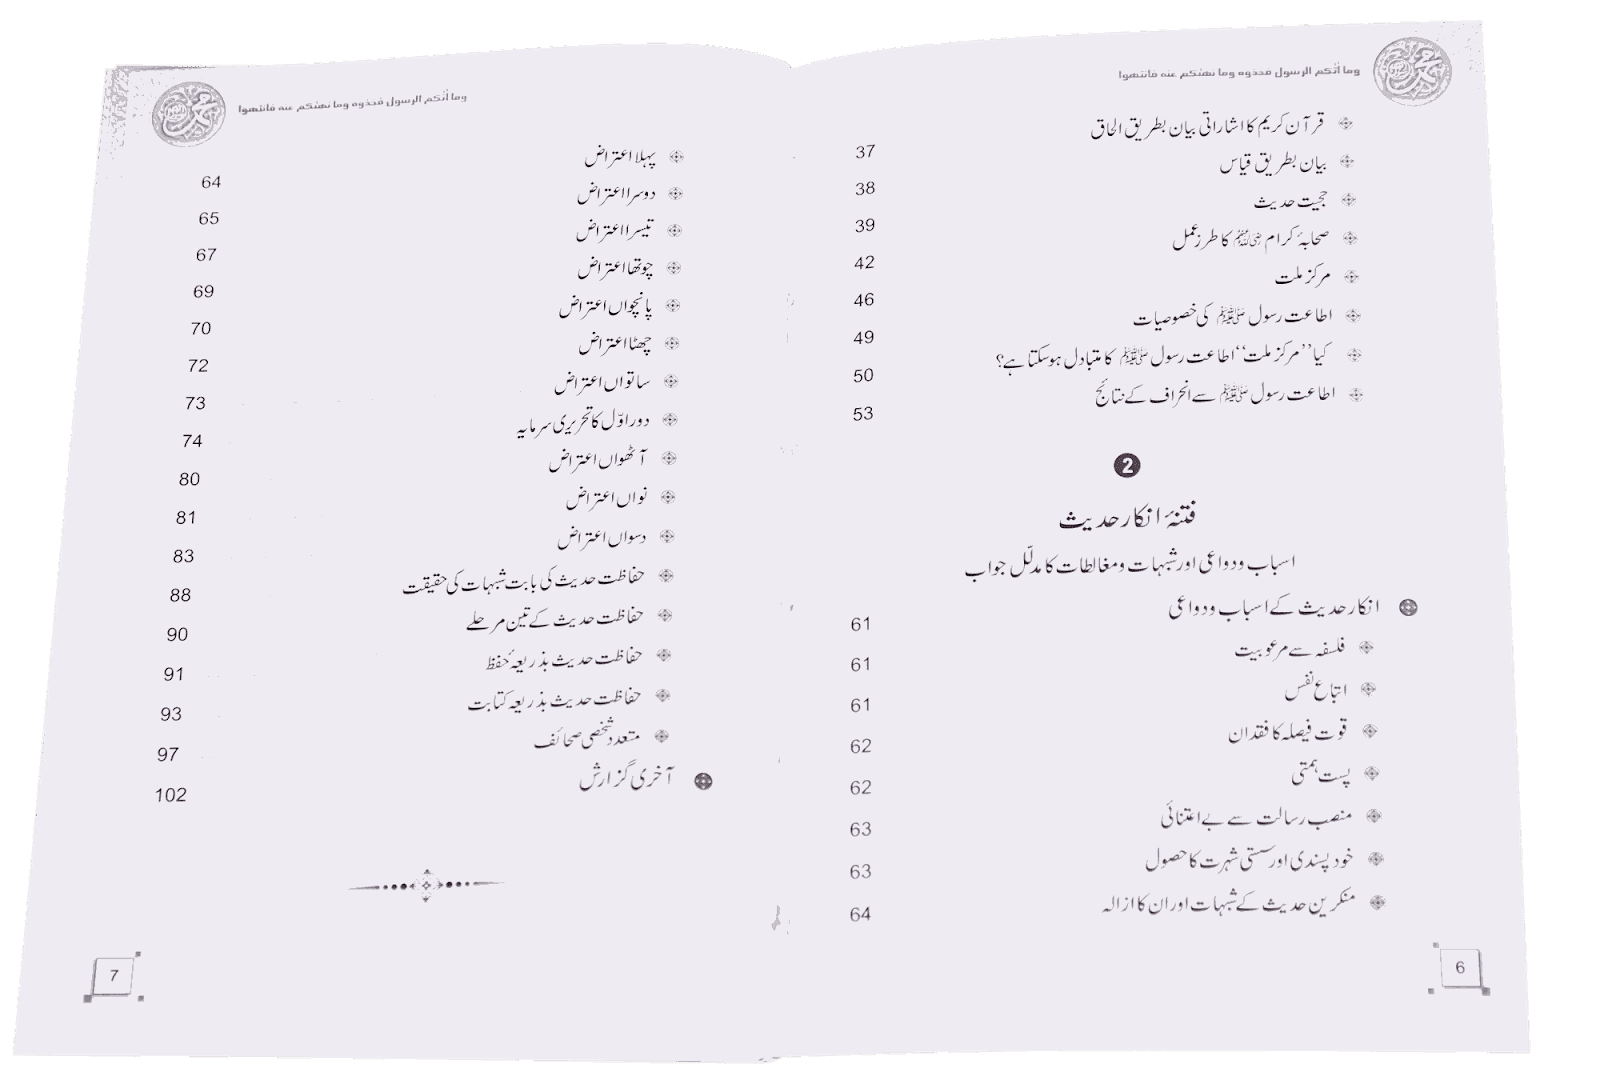 وما آتٰكم الرسول فخذوه وما نهٰكم عنه فانتهوا
قرآن کریم کا اشاراتی بیان بطریق الحاق 37
بیان بطریق قیاس 38
حجیت حدیث 39
صحابۂ کرام رضی اللہ عنہم کا طرز عمل 42
مرکز ملت 46
اطاعت رسول ﷺ کی خصوصیات 49
کیا ’’مرکز ملت‘‘ اطاعت رسول ﷺ کا متبادل ہوسکتا ہے؟ 50
اطاعت رسول ﷺ سے انحراف کے نتائج 53
2
فتنۂ انکار حدیث
اسباب ودواعی اور شبہات ومغالطات کا مدلّل جواب
انکار حدیث کے اسباب ودواعی 61
فلسفہ سے مرعوبیت 61
اتباع نفس 61
قوت فیصلہ کا فقدان 62
پست ہمتی 62
منصب رسالت سے بے اعتنائی 63
خود پسندی اور سستی شہرت کا حصول 63
منکرین حدیث کے شبہات اور ان کا ازالہ 64
6
وما آتٰكم الرسول فخذوه وما نهٰكم عنه فانتهوا
پہلا اعتراض 64
دوسرا اعتراض 65
تیسرا اعتراض 67
چوتھا اعتراض 69
پانچواں اعتراض 70
چھٹا اعتراض 72
ساتواں اعتراض 73
دور اوّل کا تحریری سرمایہ 74
آٹھواں اعتراض 80
نواں اعتراض 81
دسواں اعتراض 83
حفاظت حدیث کی بابت شبہات کی حقیقت 88
حفاظت حدیث کے تین مرحلے 90
حفاظت حدیث بذریعۂ حفظ 91
حفاظت حدیث بذریعہ کتابت 93
متعدد شخصی صحائف 97
آخری گزارش 102
7